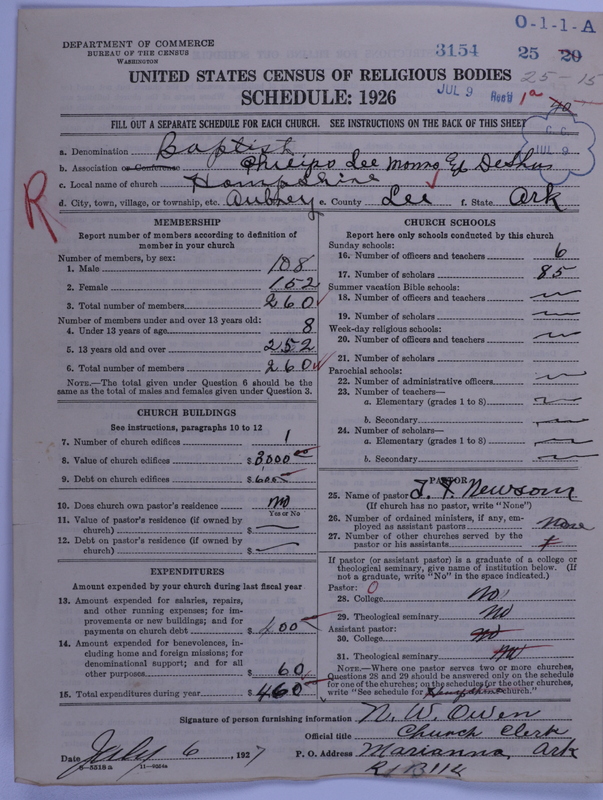 O-1-1-A
DEPARTMENT OF COMMERCE
BUREAU OF THE CENSUS
WASHINGTON
3154 25 20
25-15
UNITED STATES CENSUS OF RELIGIOUS BODIES
SCHEDULE: 1926
JUL 9 Rec'd 1a
FILL OUT A SEPARATE SCHEDULE FOR EACH CHURCH. SEE INSTRUCTIONS ON THE BACK OF THIS SHEET
C. C.
JUL 9
a. Denomination Baptist
b. Association or Conference Phillips Lee Monroe & Desha
c. Local name of church Hampshire
d. City, town, village, or township, etc. Aubrey e. County Lee f. State Ark
R
MEMBERSHIP
Report number of members according to definition of member in your church
Number of members, by sex:
1. Male 108
2. Female 152
3. Total number of members 260
Number of members under and over 13 years old:
4. Under 13 years of age 8
5. 13 years old and over 252
6. Total number of members 260
NOTE.—The total given under Question 6 should be the same as the total of males and females given under Question 3.
CHURCH BUILDINGS
See instructions, paragraphs 10 to 12
7. Number of church edifices 1
8. Value of church edifices $ 3000 00
9. Debt on church edifices $ 600
10. Does church own pastor's residence? no
Yes or No
11. Value of pastor's residence (if owned by church) $
12. Debt on pastor's residence (if owned by church) $
EXPENDITURES
Amount expended by your church during last fiscal year
13. Amount expended for salaries, repairs, and other running expenses; for improvements or new buildings; and for payments on church debt $ 400
14. Amount expended for benevolences, including home and foreign missions; for denominational support; and for all other purposes $ 60
15. Total expenditures during year $ 460
CHURCH SCHOOLS
Report here only schools conducted by this church
Sunday schools:
16. Number of officers and teachers 6
17. Number of scholars 85
Summer vacation Bible schools:
18. Number of officers and teachers
19. Number of scholars
Week-day religious schools:
20. Number of officers and teachers
21. Number of scholars
Parochial schools:
22. Number of administrative officers
23. Number of teachers—
a. Elementary (grades 1 to 8)
b. Secondary
24. Number of scholars—
a. Elementary (grades 1 to 8)
b. Secondary
PASTOR
25. Name of pastor Newsom
(If church has no pastor, write "None")
26. Number of ordained ministers, if any, employed as assistant pastors none
27. Number of other churches served by the pastor or his assistants
If pastor (or assistant pastor) is a graduate of a college or theological seminary, give name of institution below. (If not a graduate, write "No" in the space indicated.)
Pastor: 0
28. College no
29. Theological seminary no
Assistant pastor:
30. College no
31. Theological seminary no
NOTE.—Where one pastor serves two or more churches, Questions 28 and 29 should be answered only on the schedule for one of the churches; on the schedules for the other churches, write "See schedule for Hampshire church."
Signature of person furnishing information N. W. Owen
Official title Church Clerk
Date July 6, 1927 P. O. Address Marianna, Ark
8-5518a 11-9554a